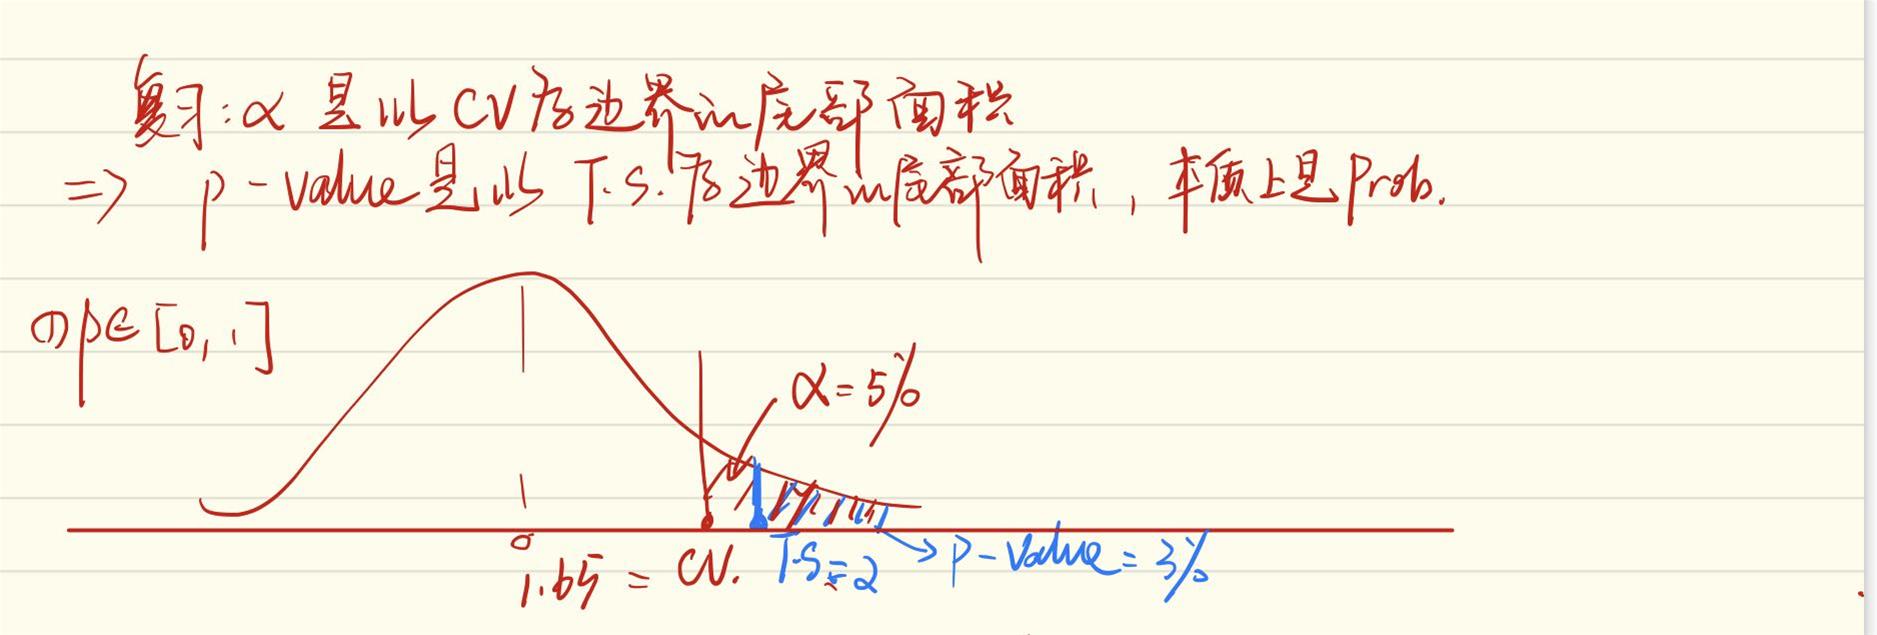 复习:α 是以CV为边界的尾部面积
=> p-value是以 T.S.为边界的尾部面积，本质上是Prob.
① p∈[0,1]
α=5%
0
1.65 = CV. T.S.=2 → P-Value=3%